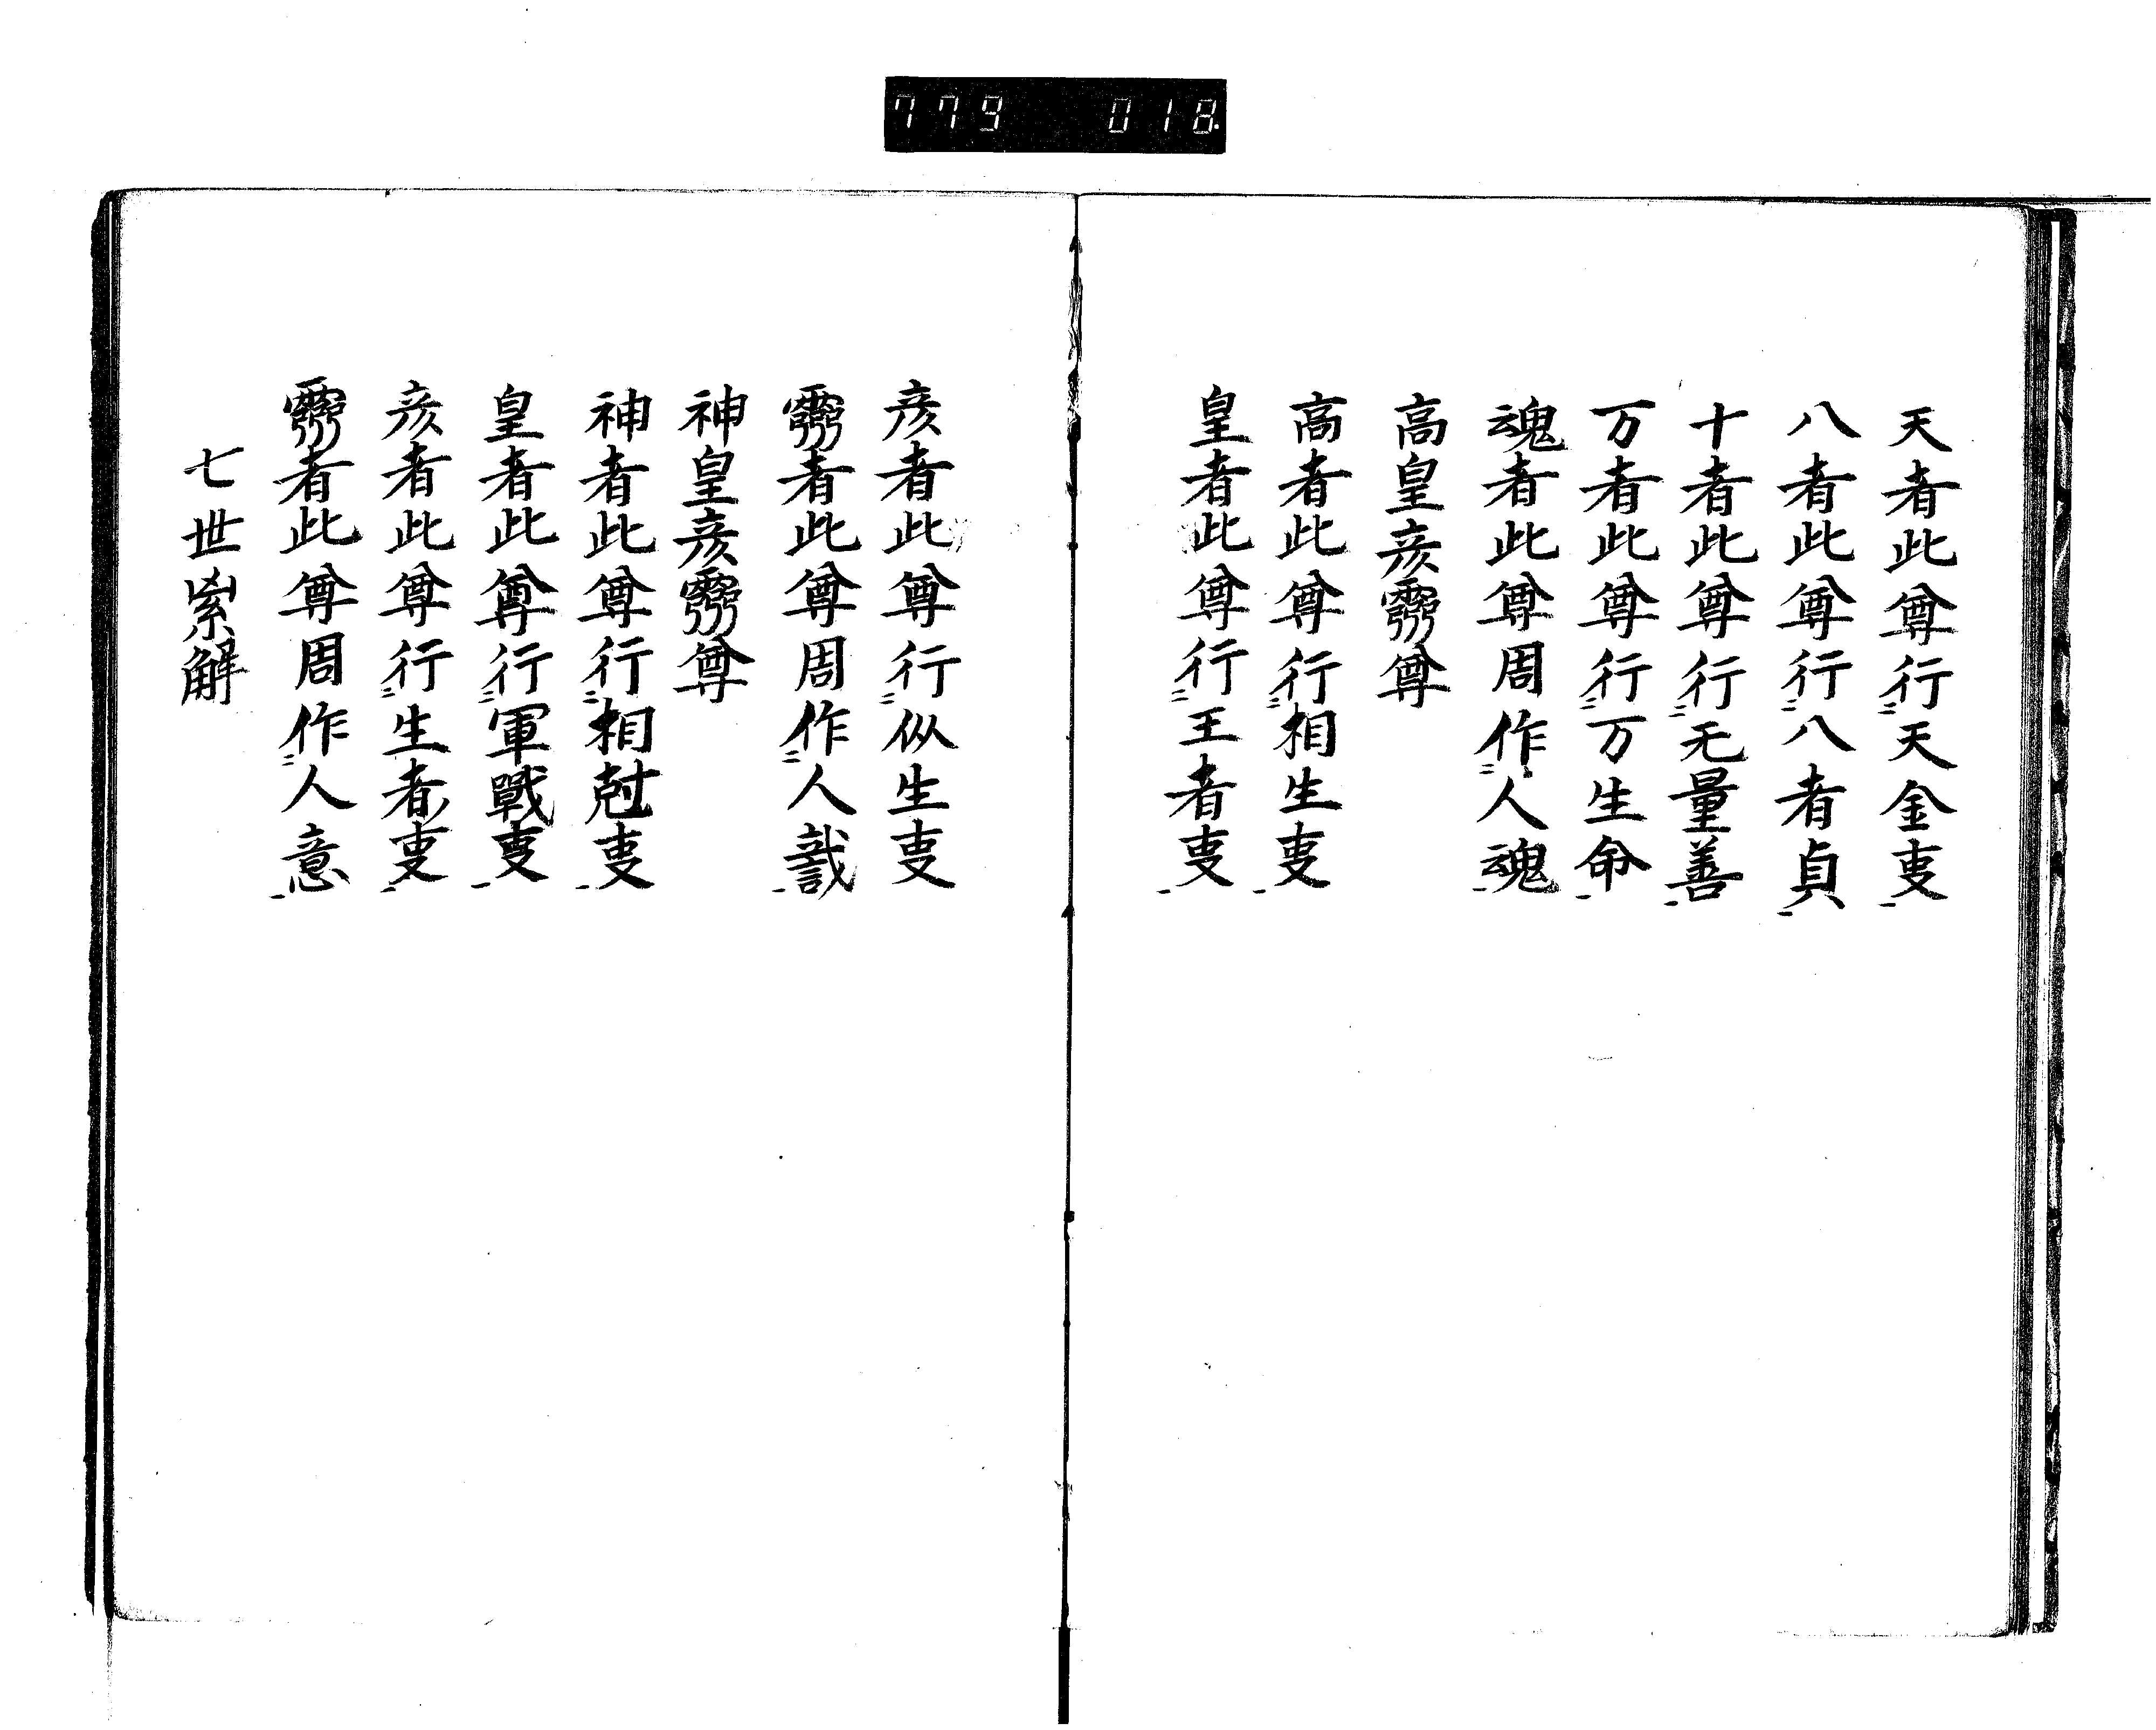 779 018
天者此尊行天金㕝
八者此尊行八者貞
十者此尊行无量善
万者此尊行万生命
魂者此尊周作人魂
高皇彦霛尊
高者此尊行相生㕝
皇者此尊行王者㕝
彦者此尊行似生㕝
霛者此尊周作人識
神皇彦霛尊
神者此尊行相尅㕝
皇者此尊行軍戰㕝
彦者此尊行生者㕝
霛者此尊周作人意
七世解